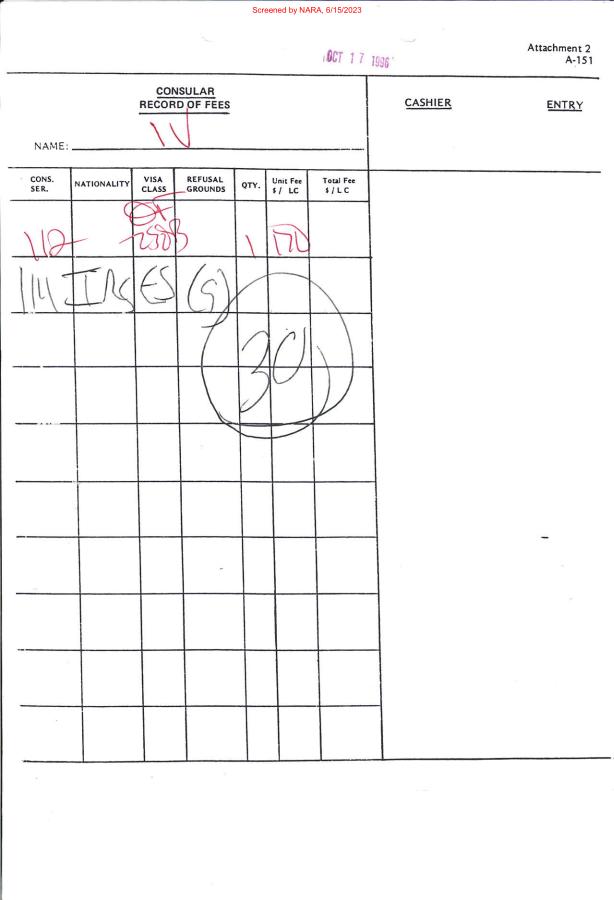 Screened by NARA, 6/15/2023
OCT 17 1996
Attachment 2
A-151
CONSULAR
RECORD OF FEES
CASHIER
ENTRY
NAME: IV
CONS. SER.
NATIONALITY
VISA CLASS
REFUSAL GROUNDS
QTY.
Unit Fee $ / LC
Total Fee $ / LC
112
1 170
(G)
30